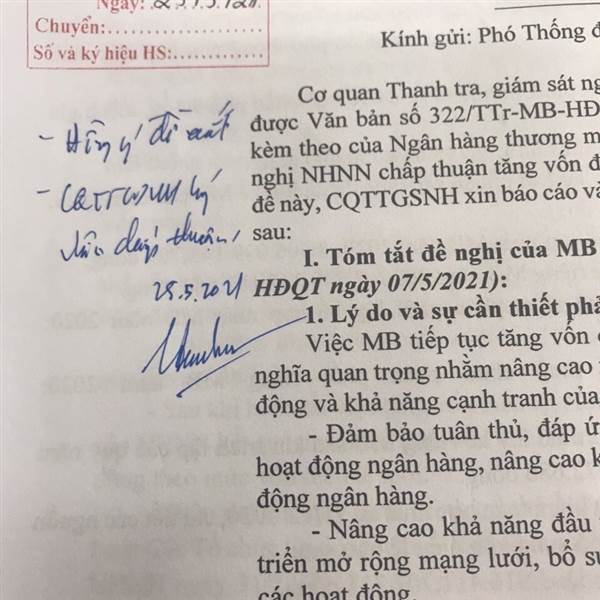 Ngày:
Chuyển:
Số và ký hiệu HS:
Kính gửi: Phó Thống đ
Cơ quan Thanh tra, giám sát ng
được Văn bản số 322/TTr-MB-HĐ
kèm theo của Ngân hàng thương m
nghị NHNN chấp thuận tăng vốn đ
đề này, CQTTGSNH xin báo cáo và
sau:
I. Tóm tắt đề nghị của MB
HĐQT ngày 07/5/2021):
1. Lý do và sự cần thiết phả
Việc MB tiếp tục tăng vốn
nghĩa quan trọng nhằm nâng cao
động và khả năng cạnh tranh của
- Đảm bảo tuân thủ, đáp ứ
hoạt động ngân hàng, nâng cao k
động ngân hàng.
- Nâng cao khả năng đầu
triển mở rộng mạng lưới, bổ su
các hoạt động.
- Đồng ý đề xuất
- CQTTGSNH ký
văn chấp thuận
28.5.2021